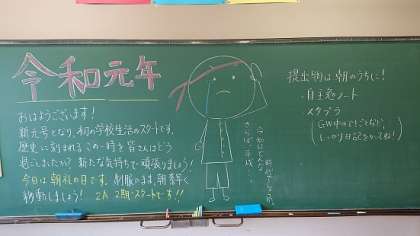 令和元年
おはようございます!
新元号となり、初の学校生活のスタートです。
歴史に刻まれるこの一時を皆さんはどう
過ごしましたか? 新たな気持ちで頑張りましょう!
今日は朝礼の日です。制服のまま、朝素早く
移動しましょう! 2A 2期 スタートです!!
さらば平成…
提出物は朝のうちに!
・自主学ノート
・スタプラ
(GW中のできごとなど、
しっかり日記をかいてね!)